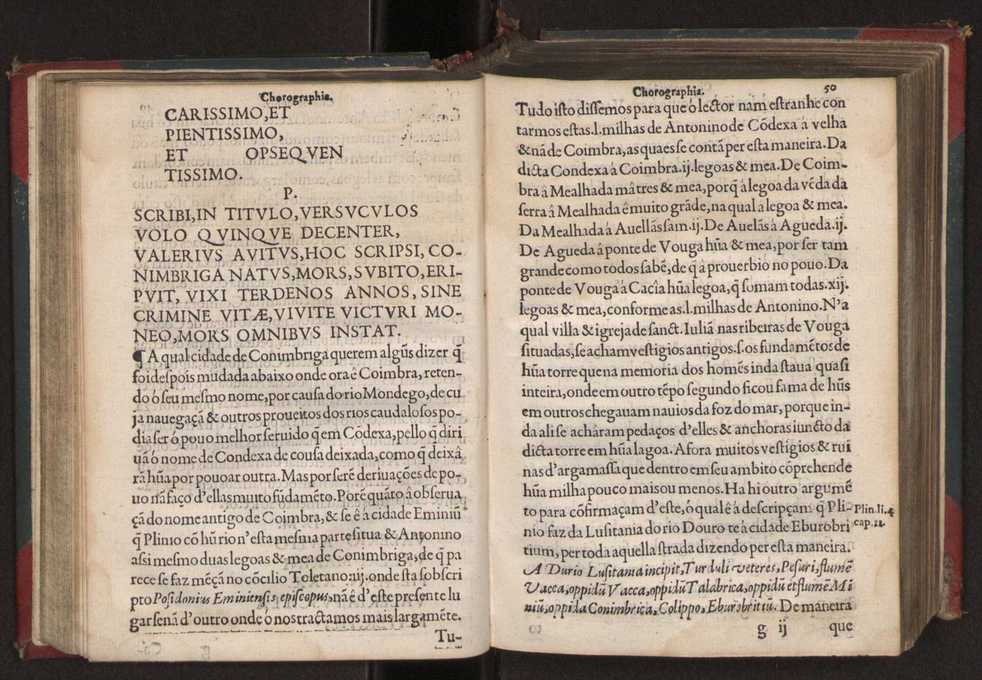 Chorographia.
CARISSIMO,ET
PIENTISSIMO,
ET OPSEQVEN
TISSIMO.
P.
SCRIBI,IN TITVLO,VERSVCVLOS
VOLO QVINQVE DECENTER,
VALERIVS AVITVS,HOC SCRIPSI, CO-
NIMBRIGA NATVS,MORS,SVBITO,ERI-
PVIT, VIXI TERDENOS ANNOS, SINE
CRIMINE VITÆ,VIVITE VICTVRI MO-
NEO,MORS OMNIBVS INSTAT.
¶ A qual cidade de Conimbriga querem algũs dizer q̃
foi despois mudada abaixo onde ora é Coimbra, reten-
do ó seu mesmo nome, por causa do rio Mondego, de cu
ja nauegaçã & outros proueitos dos rios caudalosos po-
dia ser ó pouo melhor seruido q̃ em Cõdexa, pello q̃ diri
uã ó nome de Condexa de cousa deixada, como q̃ deixâ
rã hũa por pouoar outra. Mas por serẽ deriuações de po-
uo nã faço d'ellas muito fũdamẽto. Porẽ quãto â obserua
çã do nome antigo de Coimbra, & se ê â cidade Eminiũ
q̃ Plinio cõ hũ rio n'esta mesma parte situa & Antonino
assi mesmo duas legoas & mea de Conimbriga, de q̃ pa
rece se faz mẽçã no cõcilio Toletano.iij.onde sta sobscri
pto Posidonius Eminiensis episcopus, nã é d'este presente lu
gar senã d'outro onde ó nos tractamos mais largamẽte.
Tu-
Chorographia. 50
Tudo isto dissemos para que ó lector nam estranhe con
tarmos estas.l.milhas de Antonino de Cõdexa â velha
& nã de Coimbra, as quaes se contã per esta maneira. Da
dicta Condexa à Coimbra.ij.legoas & mea. De Coim-
bra â Mealhada mâ tres & mea, porq̃ â legoa da vẽda da
serra â Mealhada ê muito grãde, na qual a legoa & mea.
Da Mealhada â Auellãs sam.ij.De Auelãs à Agueda.ij.
De Agueda â ponte de Vouga hũa & mea, por ser tam
grande como todos sabẽ, de q̃ â prouerbio no pouo. Da
ponte de Vouga â Cacía hũa legoa, q̃ somam todas.xij.
legoas & mea, conforme as.l.milhas de Antonino. N'a
qual villa & igreja de sanct. Iuliã nas ribeiras de Vouga
situadas, se acham vestigios antigos.s.os fundamẽtos de
hũa torre que na memoria dos homẽs inda staua quasi
inteira, onde em outro tẽpo segundo ficou fama de hũs
em outros chegauam nauios da foz do mar, porque in-
da ali se achâram pedaços d'elles & anchoras iuncto da
dicta torre em hũa lagoa. Afora muitos vestigios & rui
nas d'argamassa que dentro em seu ambito cõprehende
hũa milha pouco mais ou menos. Ha hi outro argumẽ
to para cõfirmaçam d'este, ó qual ê â descripçam q̃ Pli-
nio faz da Lusitania do rio Douro te â cidade Eburobri
tium, per toda aquella strada dizendo per esta maneira.
A Durio Lusitania incipit, Turduli veteres, Pesuri, flumẽ
Vacca, oppidũ Vacca, oppidũ Talabrica, oppidũ et flumẽ Mi
niũ, oppida Conimbrica, Colippo, Eburobritiũ. De maneira
g ij que
Plin.li.4.
cap.22.